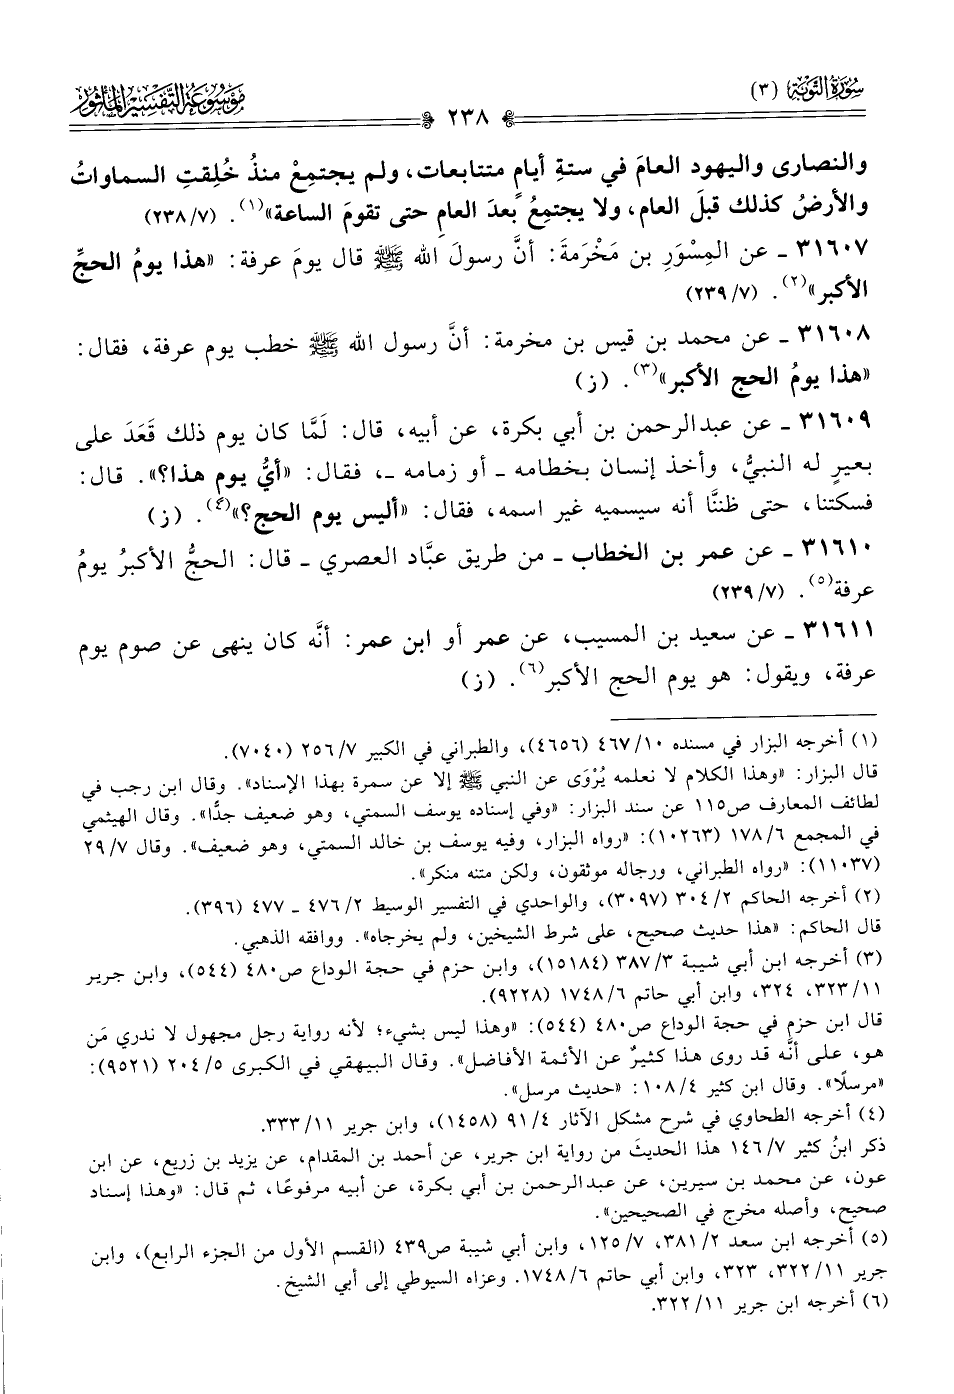 سُورَةُ التَّوْبَةِ (٣)
٢٣٨
مَوْسُوعَةُ التَّفْسِيرِ المَأْثُورِ
والنصارى واليهود العامَ في ستةِ أيامٍ متتابعات، ولم يجتمِعْ منذُ خُلِقتِ السماواتُ
والأرضُ كذلك قبلَ العام، ولا يجتمِعُ بعدَ العامِ حتى تقومَ الساعة»(١). (٢٣٨/٧)
٣١٦٠٧ ـ عن المِسْوَرِ بن مَخْرَمةَ: أنَّ رسولَ الله ﷺ قال يومَ عرفة: «هذا يومُ الحجِّ
الأكبر»(٢). (٢٣٩/٧)
٣١٦٠٨ ـ عن محمد بن قيس بن مخرمة: أنَّ رسول الله ﷺ خطب يوم عرفة، فقال:
«هذا يومُ الحج الأكبر»(٣). (ز)
٣١٦٠٩ ـ عن عبدالرحمن بن أبي بكرة، عن أبيه، قال: لَمَّا كان يوم ذلك قَعَدَ على
بعيرٍ له النبيُّ، وأخذ إنسان بخطامه ـ أو زمامه ـ، فقال: «أيُّ يوم هذا؟». قال:
فسكتنا، حتى ظننَّا أنه سيسميه غير اسمه، فقال: «أليس يوم الحج؟»(٤). (ز)
٣١٦١٠ ـ عن عمر بن الخطاب ـ من طريق عبَّاد العصري ـ قال: الحجُّ الأكبرُ يومُ
عرفة(٥). (٢٣٩/٧)
٣١٦١١ ـ عن سعيد بن المسيب، عن عمر أو ابن عمر: أنَّه كان ينهى عن صوم يوم
عرفة، ويقول: هو يوم الحج الأكبر(٦). (ز)
(١) أخرجه البزار في مسنده ٤٦٧/١٠ (٤٦٥٦)، والطبراني في الكبير ٢٥٦/٧ (٧٠٤٠).
قال البزار: «وهذا الكلام لا نعلمه يُرْوَى عن النبي ﷺ إلا عن سمرة بهذا الإسناد». وقال ابن رجب في
لطائف المعارف ص١١٥ عن سند البزار: «وفي إسناده يوسف السمتي، وهو ضعيف جدًّا». وقال الهيثمي
في المجمع ١٧٨/٦ (١٠٢٦٣): «رواه البزار، وفيه يوسف بن خالد السمتي، وهو ضعيف». وقال ٢٩/٧
(١١٠٣٧): «رواه الطبراني، ورجاله موثقون، ولكن متنه منكر».
(٢) أخرجه الحاكم ٣٠٤/٢ (٣٠٩٧)، والواحدي في التفسير الوسيط ٤٧٦/٢ ـ ٤٧٧ (٣٩٦).
قال الحاكم: «هذا حديث صحيح، على شرط الشيخين، ولم يخرجاه». ووافقه الذهبي.
(٣) أخرجه ابن أبي شيبة ٣٨٧/٣ (١٥١٨٤)، وابن حزم في حجة الوداع ص٤٨٠ (٥٤٤)، وابن جرير
٣٢٣/١١، ٣٢٤، وابن أبي حاتم ١٧٤٨/٦ (٩٢٢٨).
قال ابن حزم في حجة الوداع ص٤٨٠ (٥٤٤): «وهذا ليس بشيء؛ لأنه رواية رجل مجهول لا ندري مَن
هو، على أنَّه قد روى هذا كثيرٌ عن الأئمة الأفاضل». وقال البيهقي في الكبرى ٢٠٤/٥ (٩٥٢١):
«مرسلًا». وقال ابن كثير ١٠٨/٤: «حديث مرسل».
(٤) أخرجه الطحاوي في شرح مشكل الآثار ٩١/٤ (١٤٥٨)، وابن جرير ٣٣٣/١١.
ذكر ابنُ كثير ١٤٦/٧ هذا الحديثَ من رواية ابن جرير، عن أحمد بن المقدام، عن يزيد بن زريع، عن ابن
عون، عن محمد بن سيرين، عن عبدالرحمن بن أبي بكرة، عن أبيه مرفوعًا، ثم قال: «وهذا إسناد
صحيح، وأصله مخرج في الصحيحين».
(٥) أخرجه ابن سعد ٣٨١/٢، ١٢٥/٧، وابن أبي شيبة ص٤٣٩ (القسم الأول من الجزء الرابع)، وابن
جرير ٣٢٢/١١، ٣٢٣، وابن أبي حاتم ١٧٤٨/٦. وعزاه السيوطي إلى أبي الشيخ.
(٦) أخرجه ابن جرير ٣٢٢/١١.